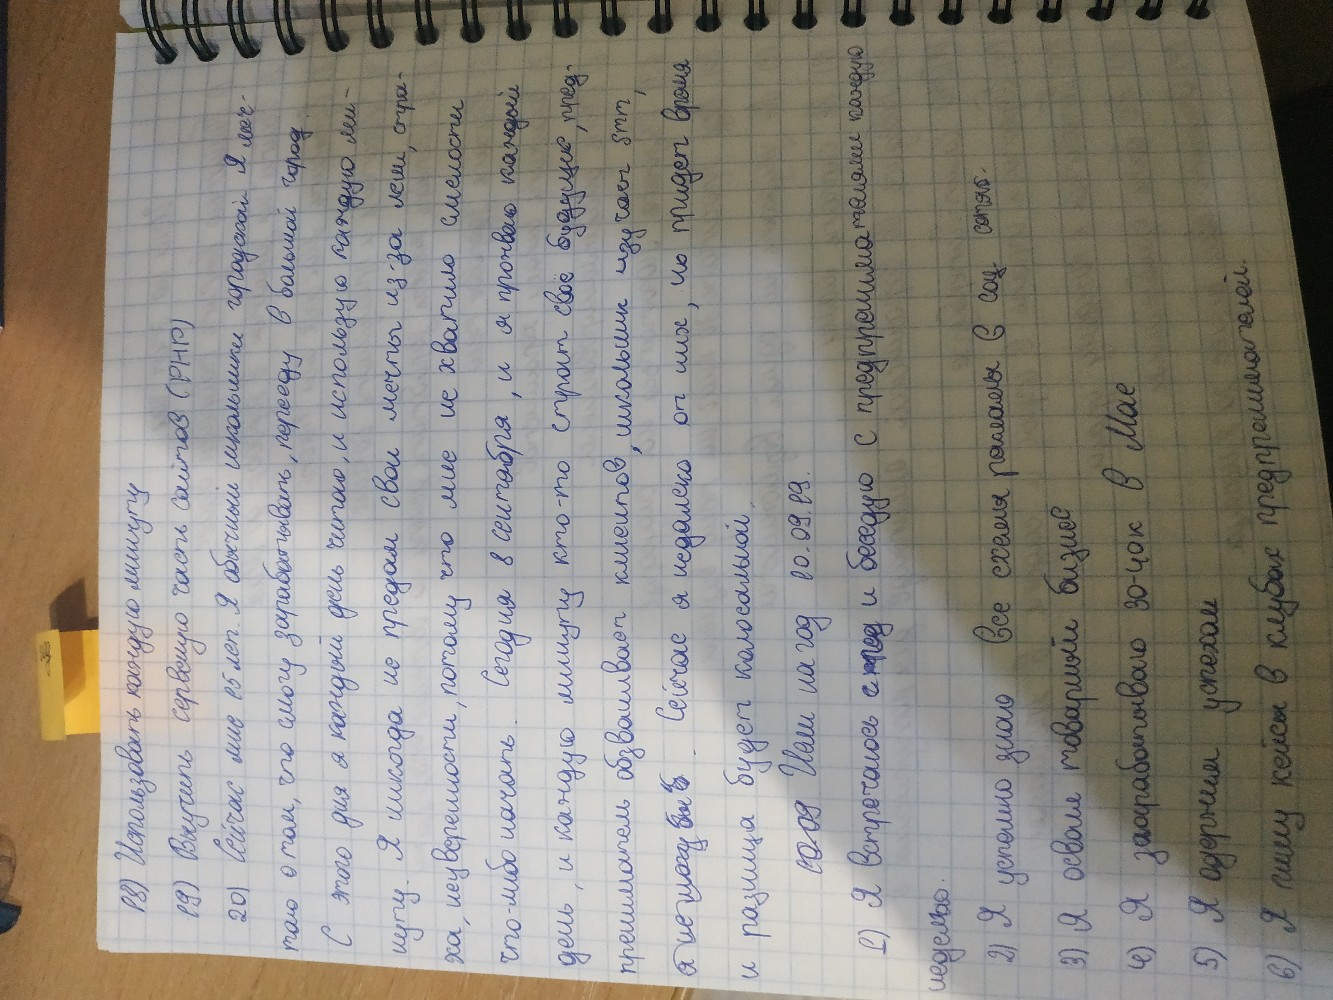 18) Использовать каждую минуту
19) Выучить сервеную часть сайтов (PHP)
20) Сейчас мне 15 лет. Я обычный школьники городской Я меч-
таю о том, что смогу зарабатывать, перееду в большой город.
С этого дня я каждый день читаю, и использую каждую ми-
нуту. Я никогда не предам свои мечты из-за лени, стра-
ха, неуверенности, потому что мне не хватило смелости
что-либо начать. Сегодня 8 сентября, и я прожваю каждый
день, и каждую минуту кто-то строит своё будущие, пред-
прениматель обзванивает клиентов, школьник изучает smm,
я не могу. Сейчас я недалеко от них, но придет время
и разница будет колосальной.
10.09 Цели на год 10.09.19.
1) Я встречаюсь с пред и беседую с предпренимателями каждую
неделю.
2) Я успешно знаю все схемы рекламы в соц сетях.
3) Я освоил товарный бизнес
4) Я заарабатываю 30-40к в Мае
5) Я одержим успехом
6) Я пишу кейсы в клубах предпренимателей.